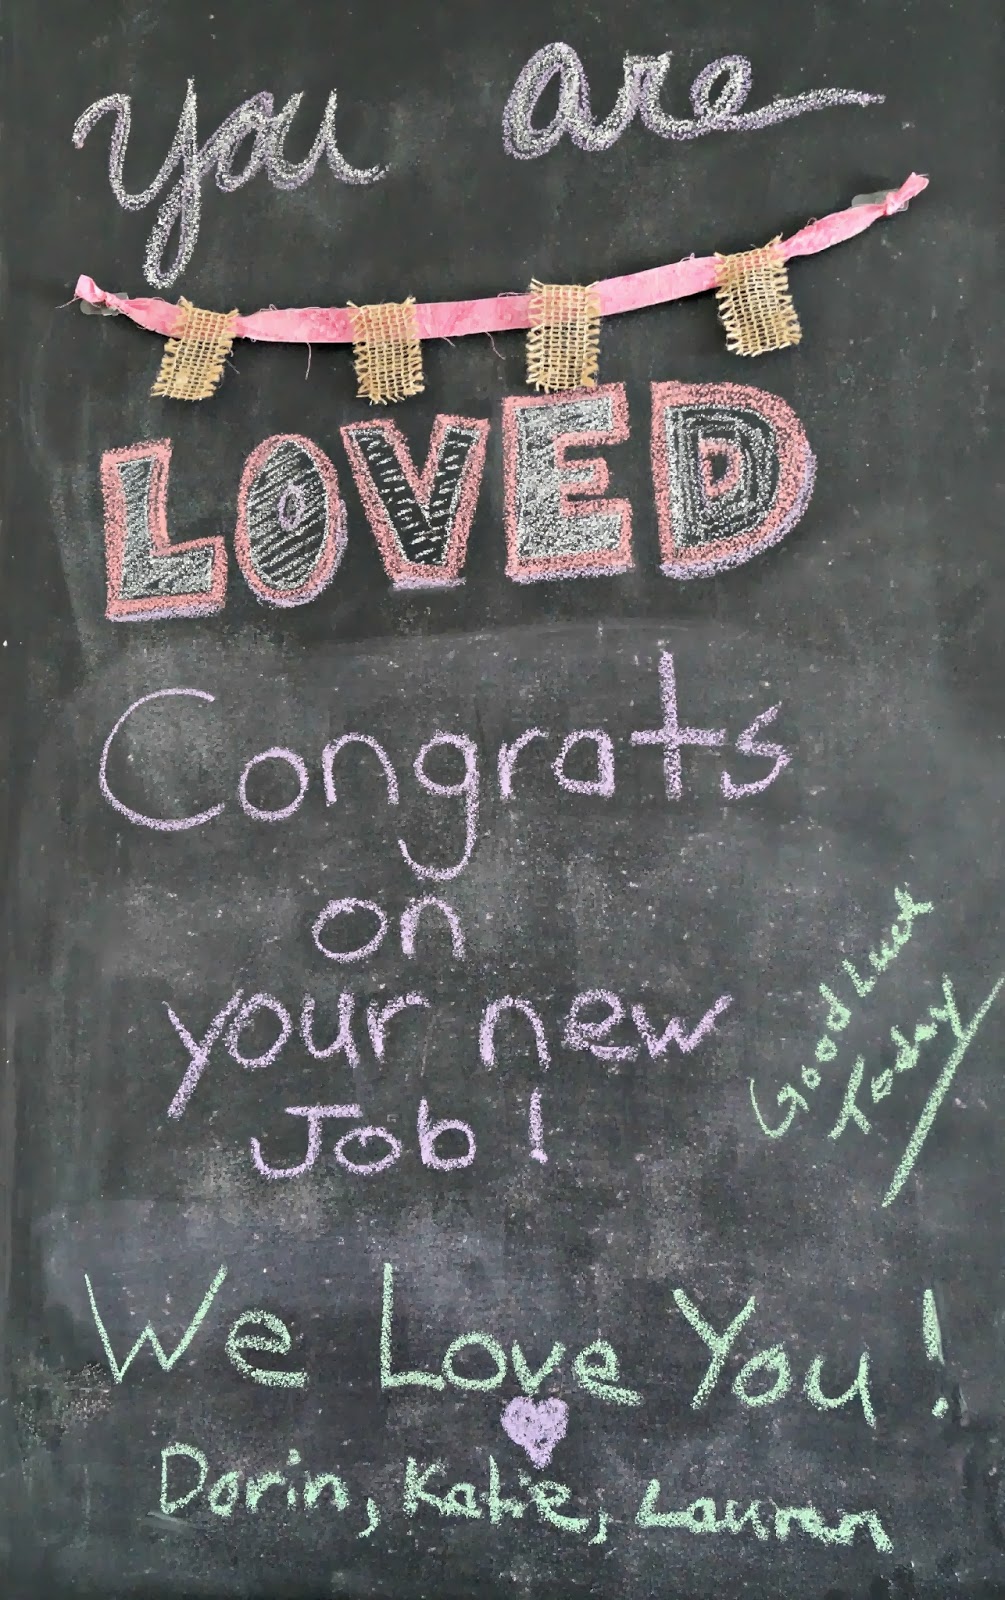 you are
LOVED
Congrats
on
your new
Job!
Good Luck
Today
We Love You!
Dorin, Katie, Lauran